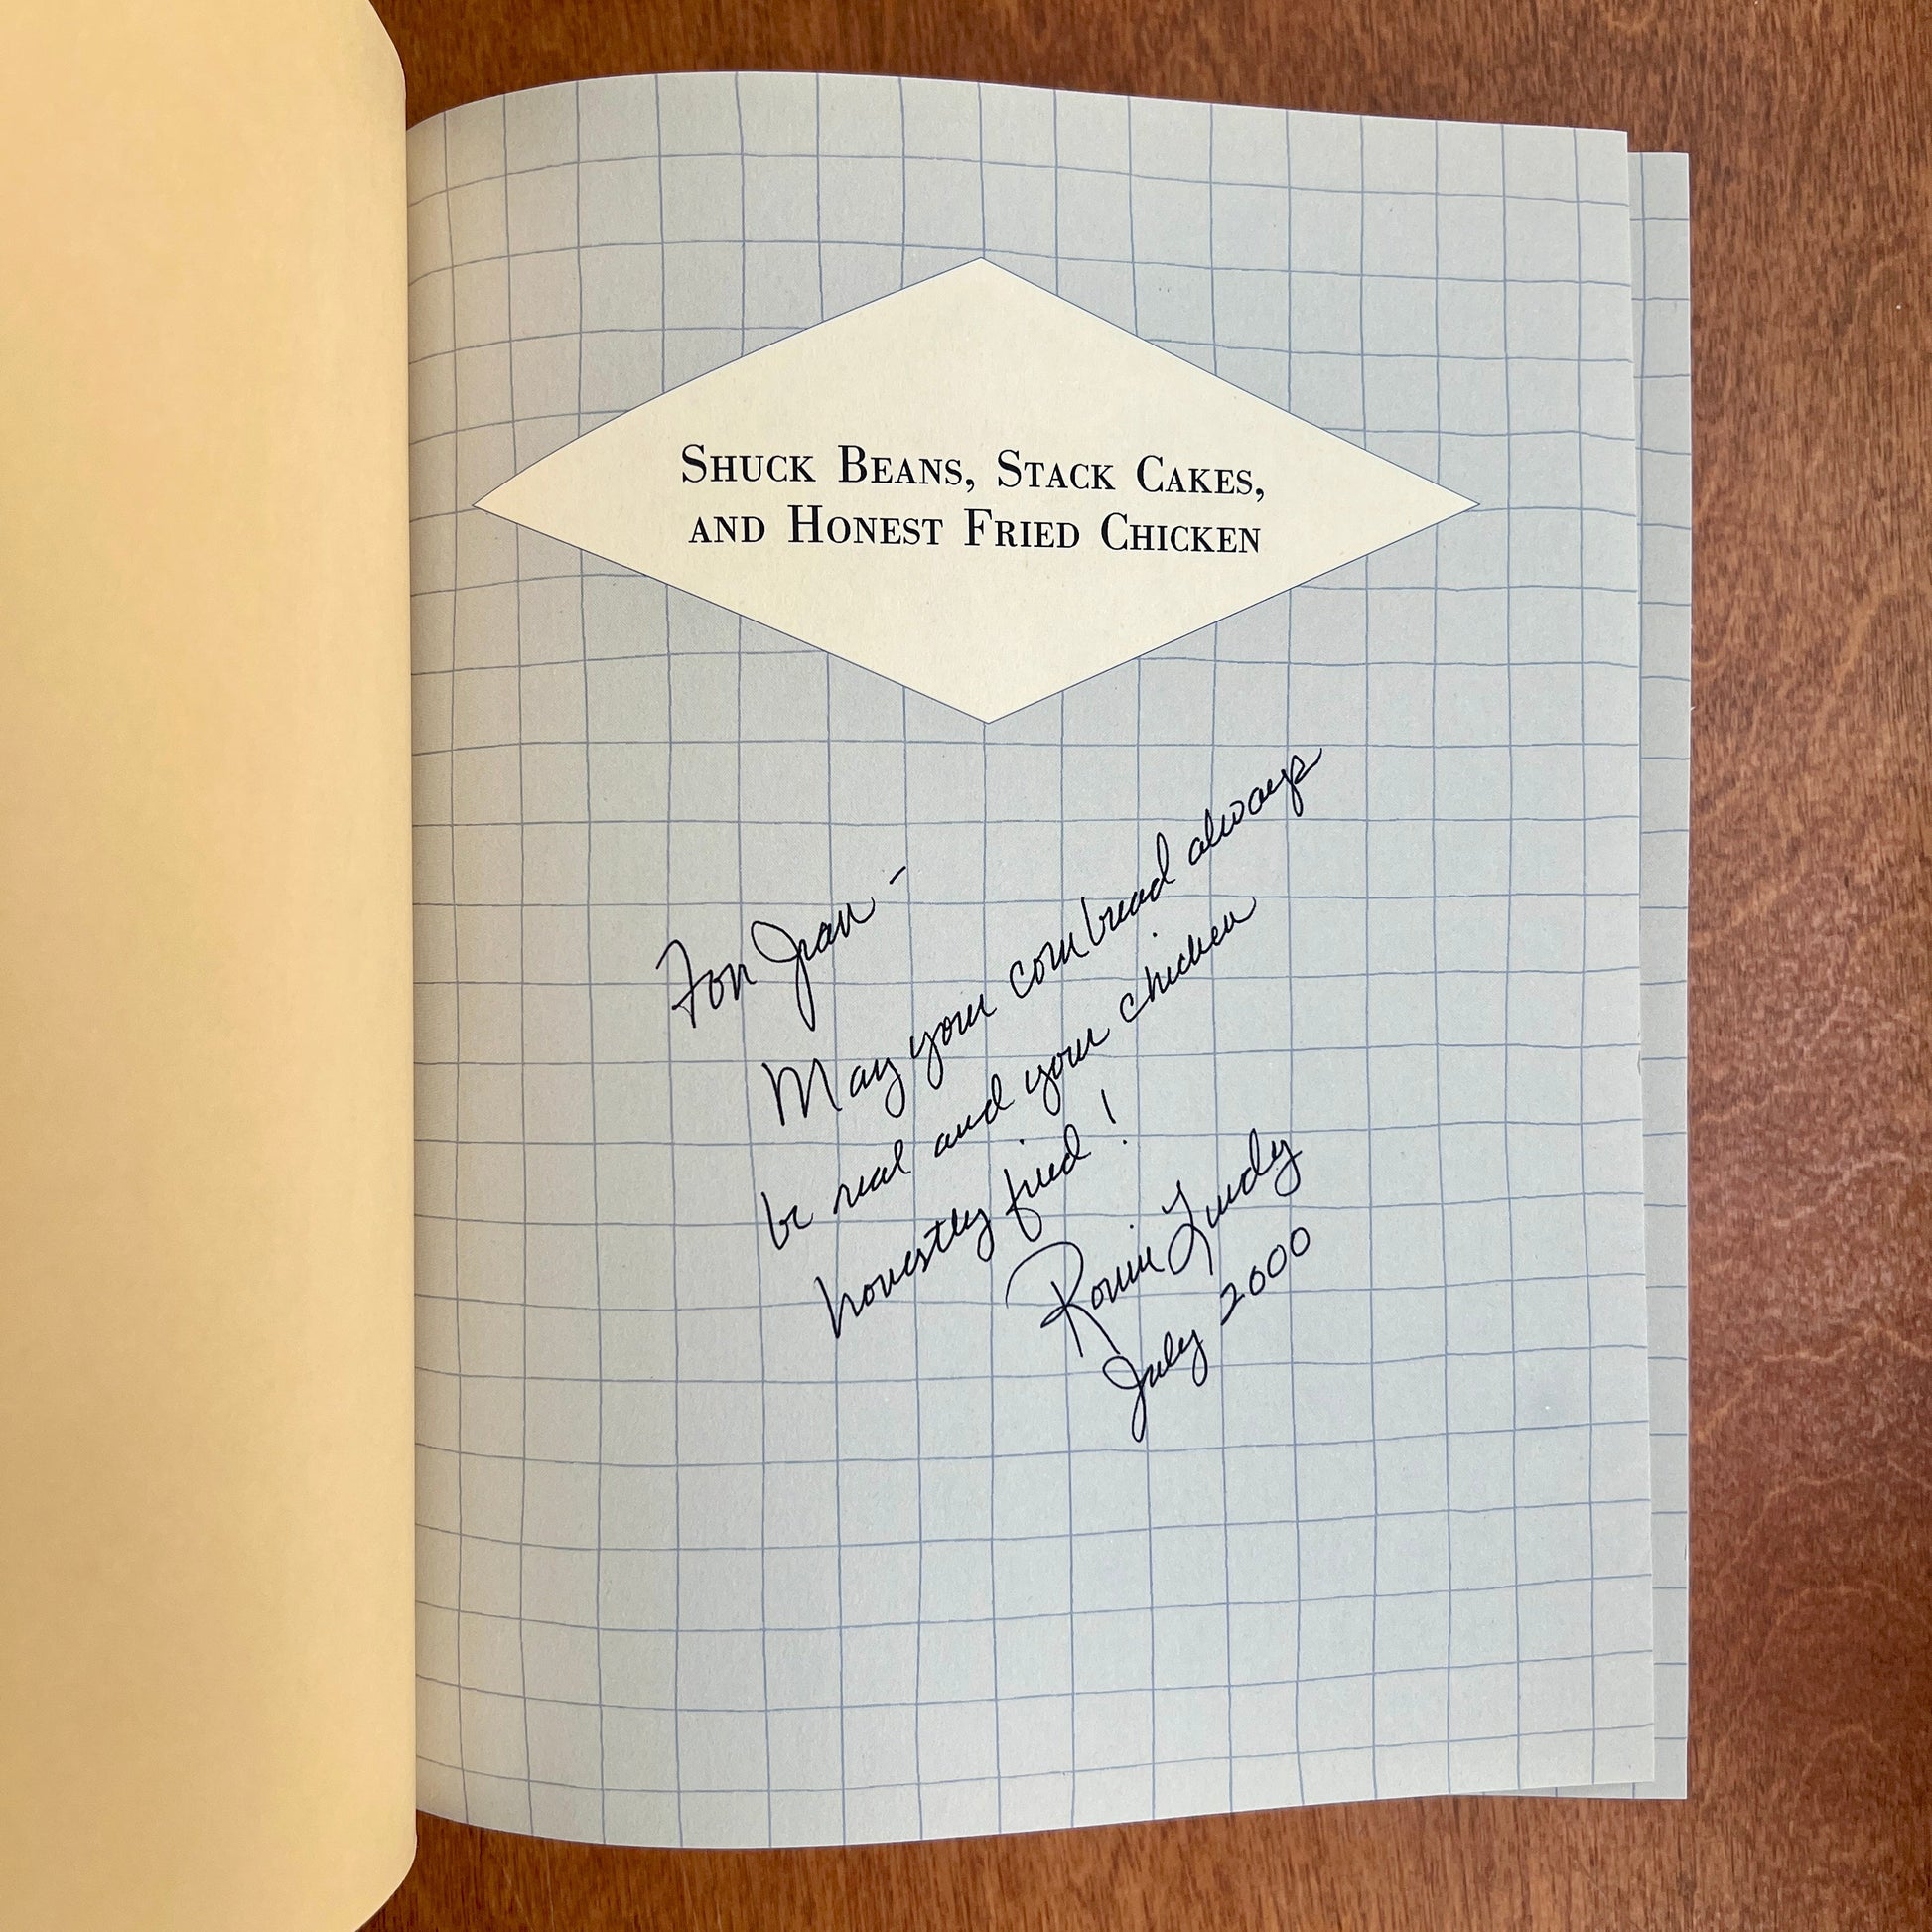 SHUCK BEANS, STACK CAKES,
AND HONEST FRIED CHICKEN
For Jean -
May your cornbread always
be real and your chicken
honestly fried!
Ronni Lundy
July 2000